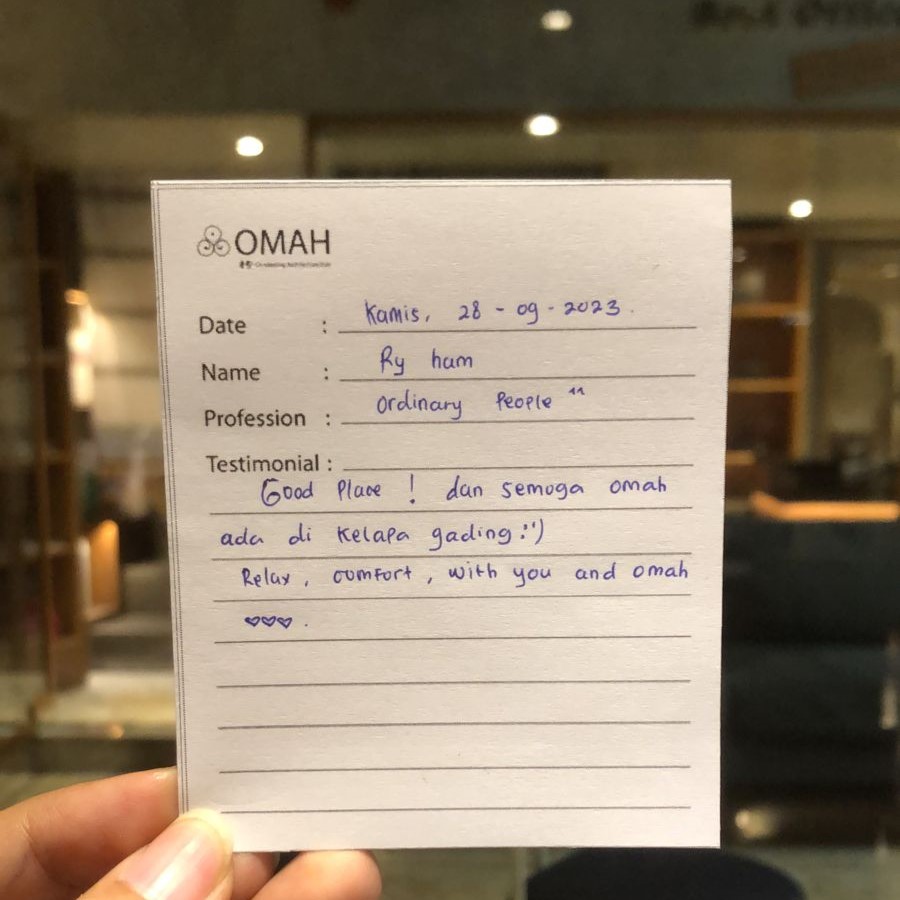 OMAH
Date : Kamis, 28 - 09 - 2023.
Name : Ry ham
Profession : Ordinary People ^^
Testimonial :
Good Place ! dan semoga omah
ada di Kelapa gading :')
Relax, comfort, with you and omah
♡♡♡.